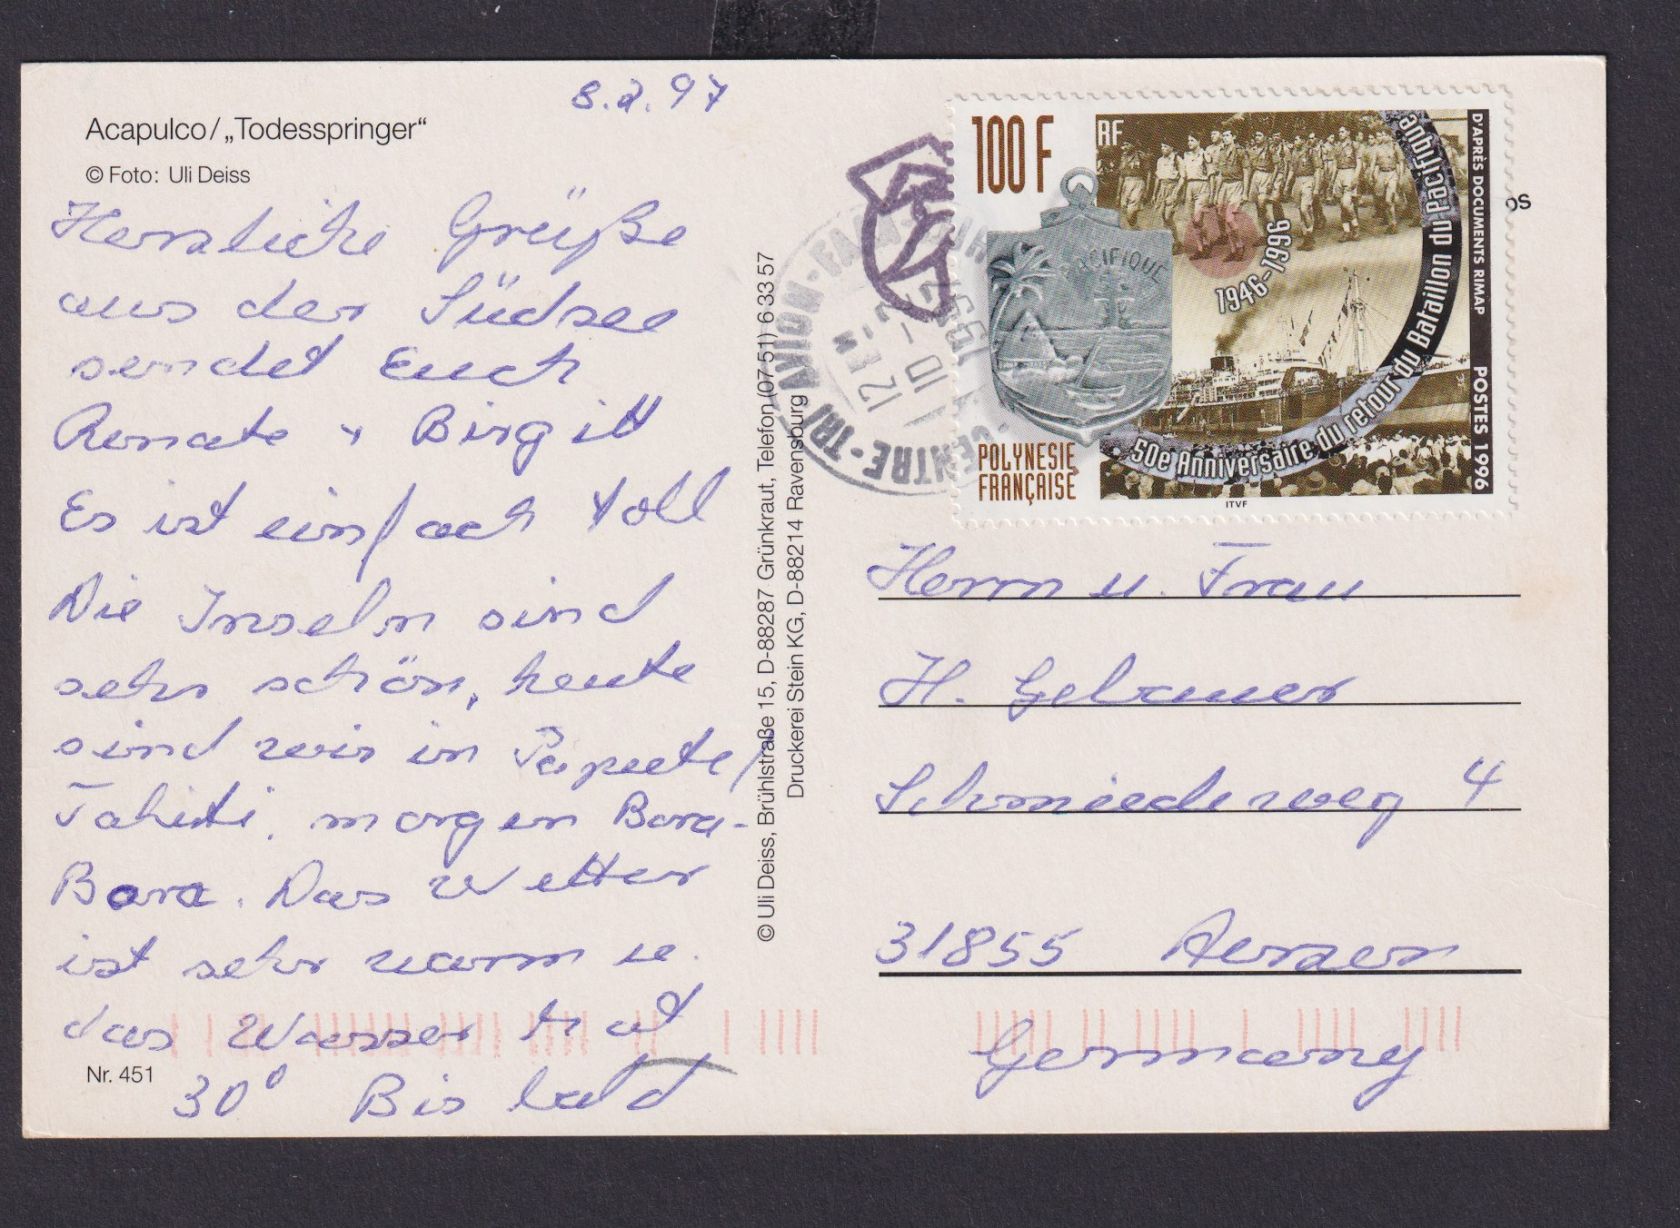 8.2.97
Acapulco/„Todesspringer“
© Foto: Uli Deiss
Herzliche Grüße
aus der Südsee
sendet Euch
Renate + Birgitt
Es ist einfach toll
Die Inseln sind
sehr schön, heute
sind wir in Papeete/
Tahiti, morgen Bora-
Bora. Das Wetter
ist sehr warm u.
das Wasser hat
30° Bis bald
Nr. 451
© Uli Deiss, Brühlstraße 15, D-88287 Grünkraut, Telefon (07 51) 6 33 57
Druckerei Stein KG, D-88214 Ravensburg
100 F
RF
D'APRÈS DOCUMENTS RIMAP
POSTES 1996
PACIFIQUE
1946-1996
50e Anniversaire du retour du Bataillon du Pacifique
POLYNESIE
FRANÇAISE
ITVF
os
CENTRE-TRI AVION-FAAA
12 H
10 -2
1997
Herrn u. Frau
H. Gelzauer
Schmiedeweg 4
31855 Aerzen
Germany